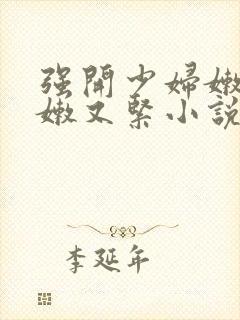 强開少婦嫩
嫩又緊小說
李延年